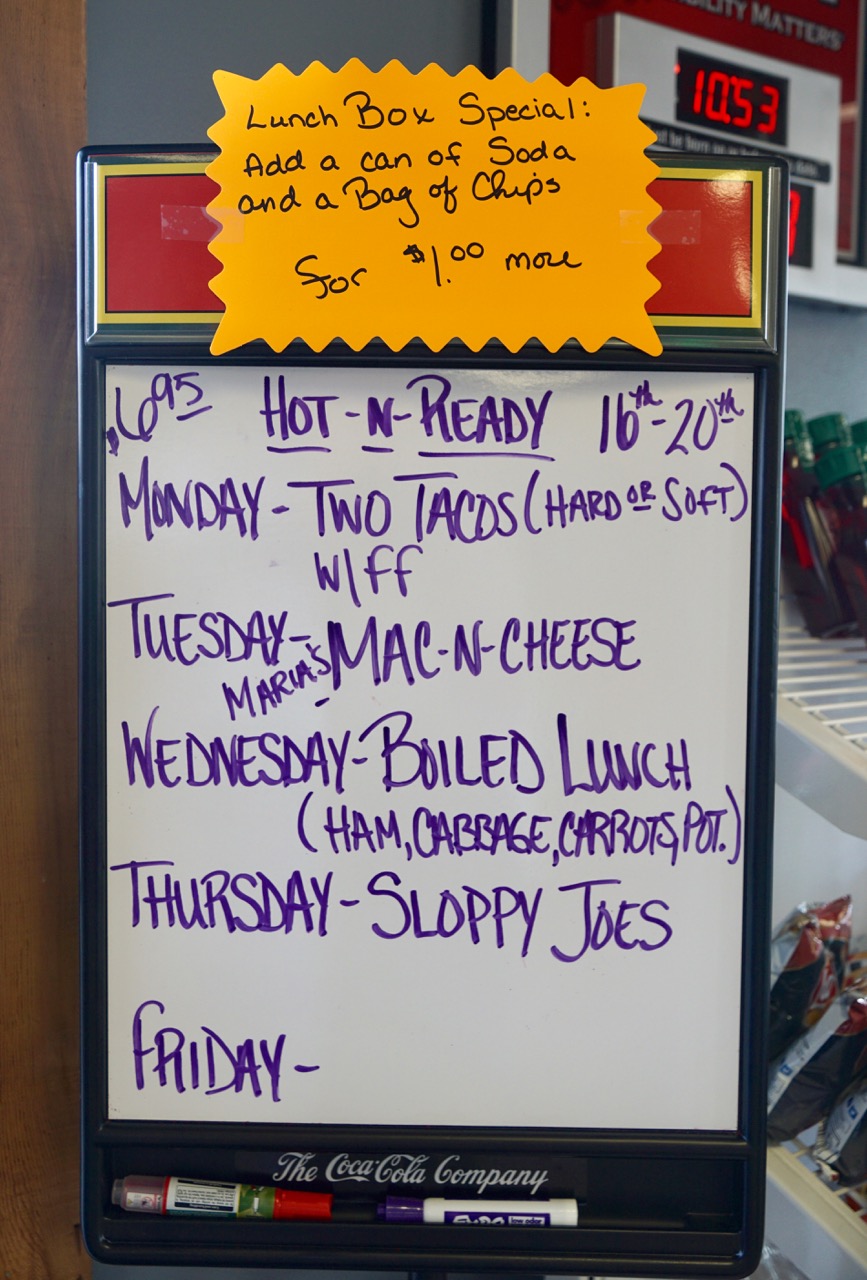 BILITY MATTERS
10:53
Lunch Box Special:
Add a can of Soda
and a Bag of Chips
for $1.00 more
$6.95 HOT-N-READY 16th-20th
MONDAY- TWO TACOS (HARD OR SOFT)
W/FF
TUESDAY- MARIA'S MAC-N-CHEESE
WEDNESDAY- BOILED LUNCH
(HAM, CABBAGE, CARROTS, POT.)
THURSDAY- SLOPPY JOES
FRIDAY-
The Coca-Cola Company
EXPO low odor